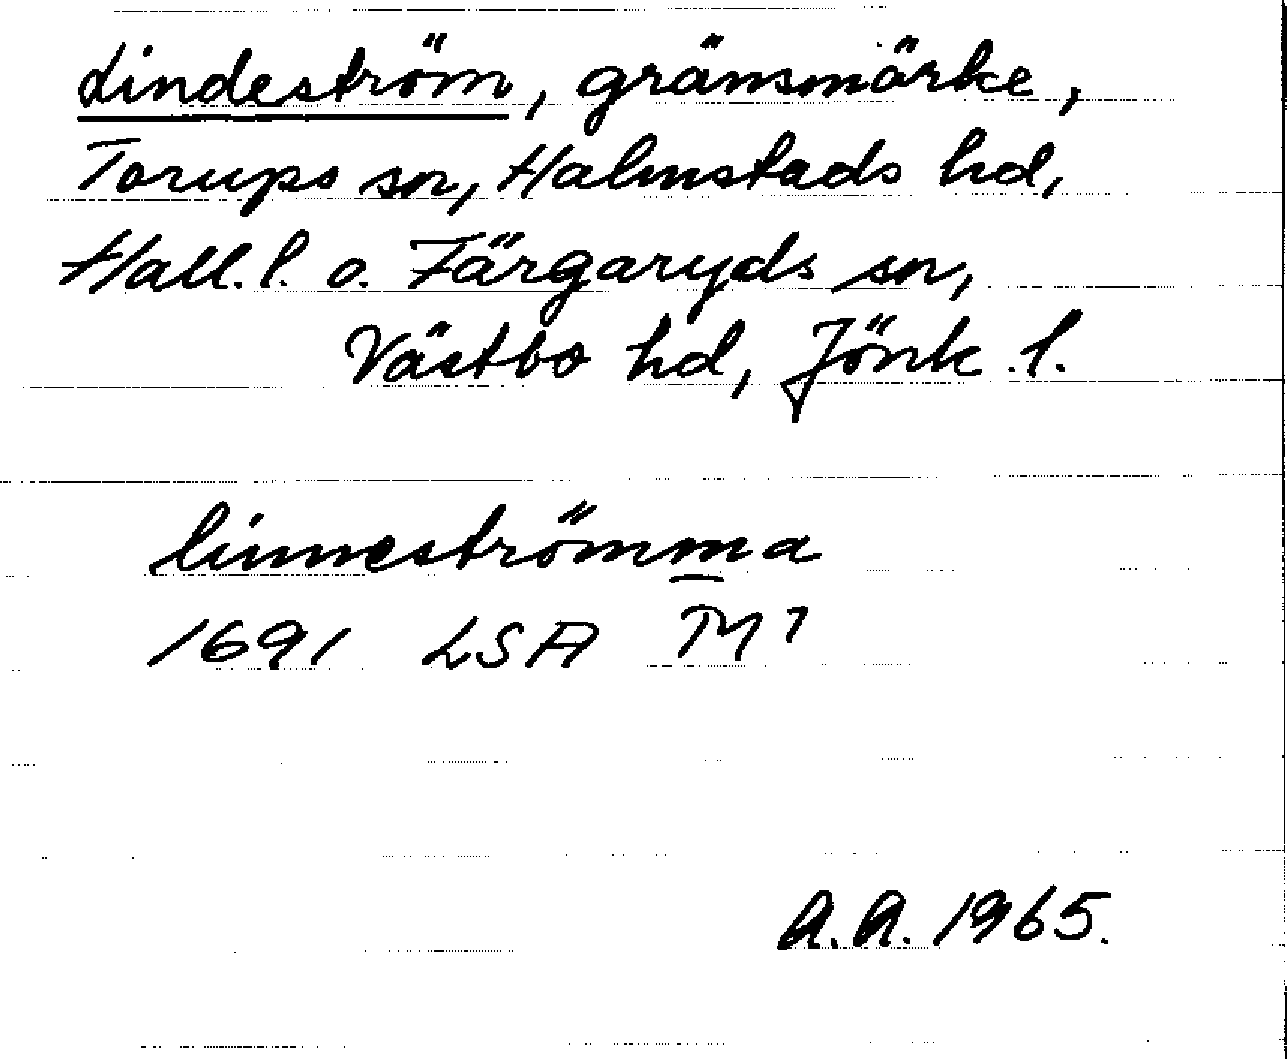 Lindeström, gränsmärke,
Torups sn, Halmstads hd,
Hall. l. o. Färgaryds sn,
Västbo hd, Jönk. l.
linneströmma
1691 LSA
A.A. 1965.